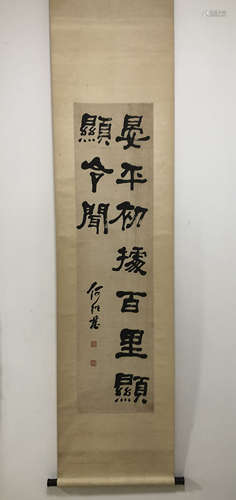 晏平初據百里顯
顯令聞
何紹基